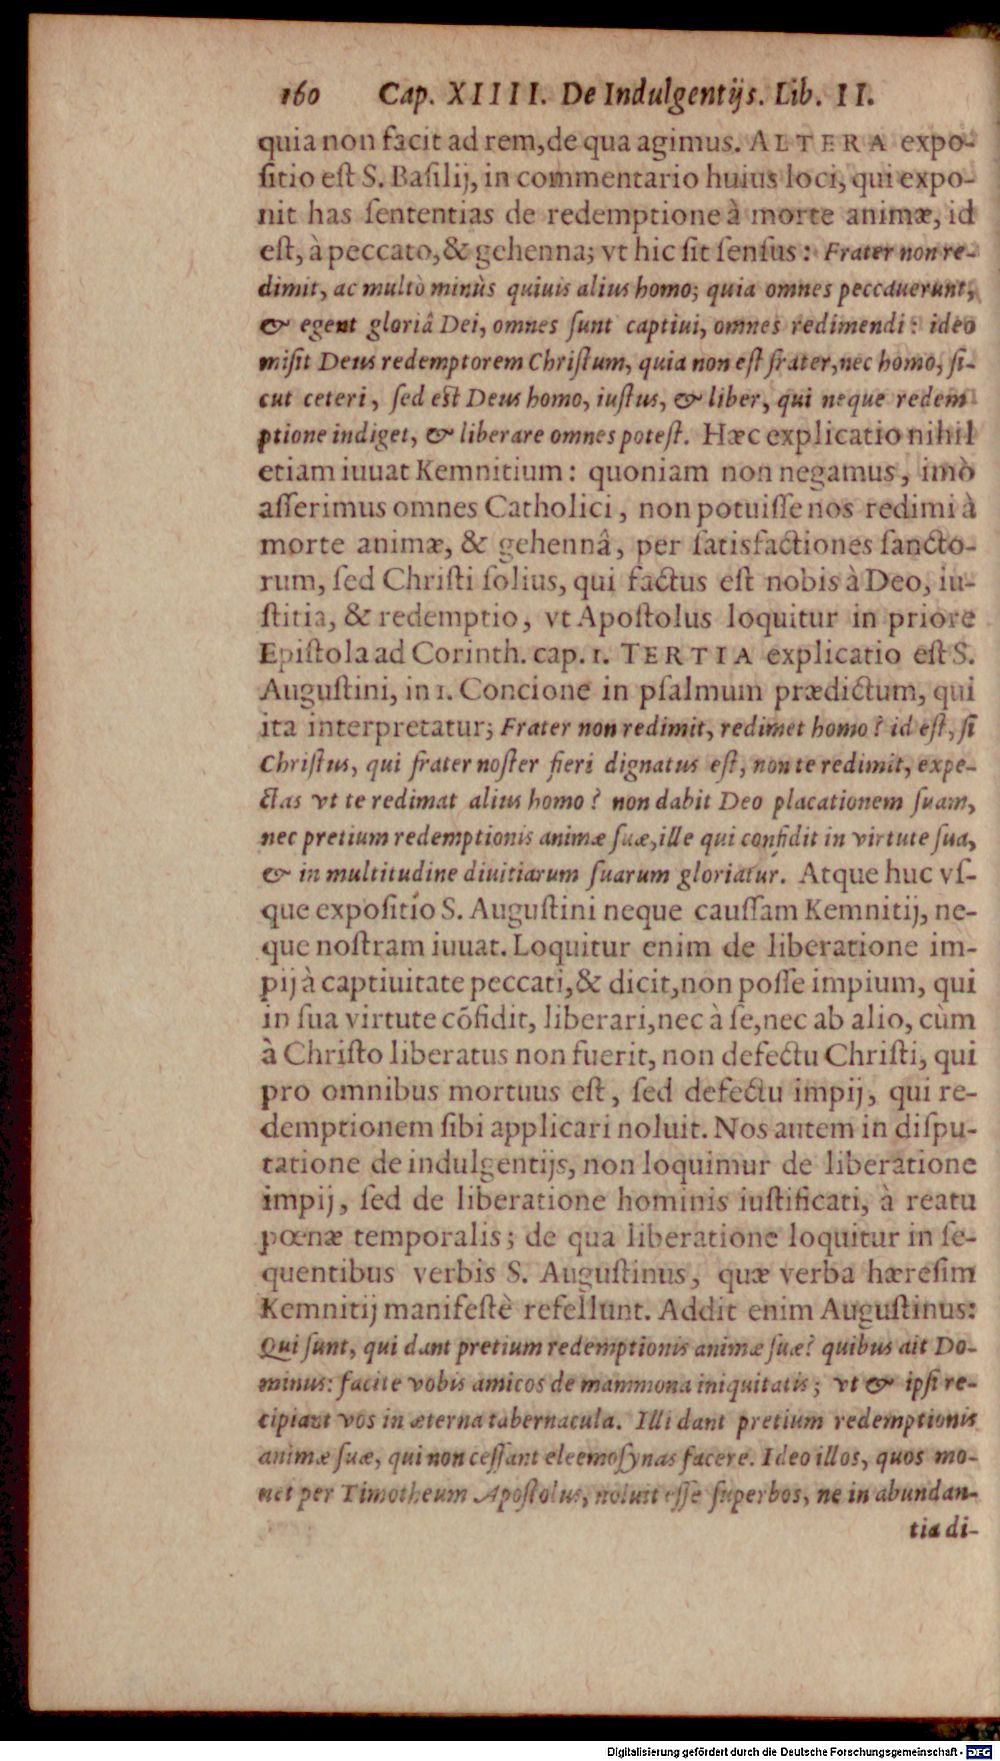 160 Cap. XIIII. De Indulgentijs. Lib. II.
quia non facit ad rem, de qua agimus. ALTERA expo-
ſitio eſt S. Baſilij, in commentario huius loci, qui expo-
nit has ſententias de redemptione à morte animæ, id
eſt, à peccato, & gehenna; vt hic ſit ſenſus: Frater non re-
dimit, ac multò minùs quiuis alius homo; quia omnes peccauerunt,
& egent gloriâ Dei, omnes ſunt captiui, omnes redimendi: ideo
miſit Deus redemptorem Chriſtum, quia non eſt frater, nec homo, ſi-
cut ceteri, ſed eſt Deus homo, iuſtus, & liber, qui neque redem
ptione indiget, & liberare omnes poteſt. Hæc explicatio nihil
etiam iuuat Kemnitium: quoniam non negamus, imò
aſſerimus omnes Catholici, non potuiſſe nos redimi à
morte animæ, & gehennâ, per ſatisfactiones ſancto-
rum, ſed Chriſti ſolius, qui factus eſt nobis à Deo, iu-
ſtitia, & redemptio, vt Apoſtolus loquitur in priore
Epiſtola ad Corinth. cap. 1. TERTIA explicatio eſt S.
Auguſtini, in 1. Concione in pſalmum prædictum, qui
ita interpretatur; Frater non redimit, redimet homo? id eſt, ſi
Chriſtus, qui frater noſter fieri dignatus eſt, non te redimit, expe-
ctas vt te redimat alius homo? non dabit Deo placationem ſuam,
nec pretium redemptionis animæ ſuæ, ille qui confidit in virtute ſua,
& in multitudine diuitiarum ſuarum gloriatur. Atque huc vſ-
que expoſitio S. Auguſtini neque cauſſam Kemnitij, ne-
que noſtram iuuat. Loquitur enim de liberatione im-
pij à captiuitate peccati, & dicit, non poſſe impium, qui
in ſua virtute cõfidit, liberari, nec à ſe, nec ab alio, cùm
à Chriſto liberatus non fuerit, non defectu Chriſti, qui
pro omnibus mortuus eſt, ſed defectu impij, qui re-
demptionem ſibi applicari noluit. Nos autem in diſpu-
tatione de indulgentijs, non loquimur de liberatione
impij, ſed de liberatione hominis iuſtificati, à reatu
pœnæ temporalis; de qua liberatione loquitur in ſe-
quentibus verbis S. Auguſtinus, quæ verba hæreſim
Kemnitij manifeſtè refellunt. Addit enim Auguſtinus:
Qui ſunt, qui dant pretium redemptionis animæ ſuæ? quibus ait Do-
minus: facite vobis amicos de mammona iniquitatis; vt & ipſi re-
cipiant vos in æterna tabernacula. Illi dant pretium redemptionis
animæ ſuæ, qui non ceſſant eleemoſynas facere. Ideo illos, quos mo-
net per Timotheum Apoſtolus, noluit eſſe ſuperbos, ne in abundan-
tia di-
Digitalisierung gefördert durch die Deutsche Forschungsgemeinschaft - DFG